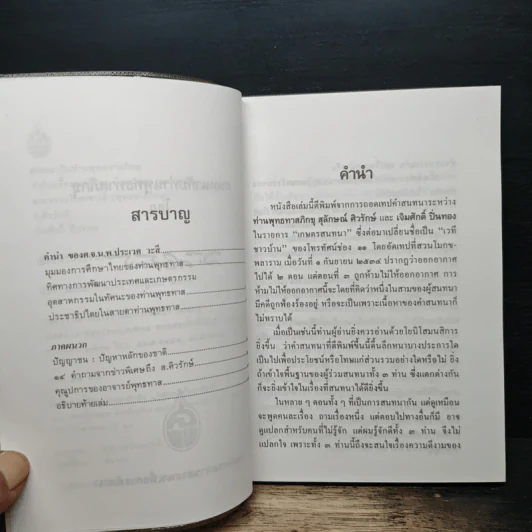 สารบาญ
คำนำ ของศ.จ.น.พ.ประเวศ วะสี
มุมมองการศึกษาไทยของท่านพุทธทาส
ทิศทางการพัฒนาประเทศและเกษตรกรรม
อุตสาหกรรมในทัศนะของท่านพุทธทาส
ประชาธิปไตยในสายตาท่านพุทธทาส
ภาคผนวก
ปัญญาชน : ปัญหาหลักของชาติ
๑๔ คำถามจากข่าวพิเศษถึง ส.ศิวรักษ์
คุณูปการของอาจารย์พุทธทาส
อธิบายท้ายเล่ม
คำนำ
หนังสือเล่มนี้ตีพิมพ์จากการถอดเทปคำสนทนาระหว่าง
ท่านพุทธทาสภิกขุ สุลักษณ์ ศิวรักษ์ และ เจิมศักดิ์ ปิ่นทอง
ในรายการ "เกษตรสนทนา" ซึ่งต่อมาเปลี่ยนชื่อเป็น "เวที
ชาวบ้าน" ของโทรทัศน์ช่อง ๑๑ โดยอัดเทปที่สวนโมกข-
พลาราม เมื่อวันที่ ๑ กันยายน ปรากฏว่าออกอากาศ
ไปได้ ๒ ตอน แต่ตอนที่ ๓ ถูกห้ามไม่ให้ออกอากาศ การ
ห้ามไม่ให้ออกอากาศนี้จะโดยที่คิดว่าหนึ่งในสามของผู้สนทนา
มีคดีถูกฟ้องร้องอยู่ หรือจะเป็นเพราะเนื้อหาของคำสนทนาก็
ไม่ทราบได้
เมื่อเป็นเช่นนี้ท่านผู้อ่านยิ่งควรอ่านด้วยโยนิโสมนสิการ
ยิ่งขึ้น ว่าคำสนทนาที่ตีพิมพ์ขึ้นนี้ตื้นลึกหนาบางประการใด
เป็นไปเพื่อประโยชน์หรือโทษแก่ส่วนรวมอย่างใดหรือไม่ ยิ่ง
ถ้าเข้าใจพื้นฐานของผู้ร่วมสนทนาทั้ง ๓ ท่าน ซึ่งแตกต่างกัน
ก็จะยิ่งเข้าใจในเรื่องที่สนทนาได้ดียิ่งขึ้น
ในหลาย ๆ ตอนทั้ง ๆ ที่เป็นการสนทนา แต่ดูเหมือน
จะพูดคนละเรื่อง ถามเรื่องหนึ่ง แต่ตอบไปทางอื่นก็มี อาจ
ดูแปลกสำหรับคนที่ไม่รู้จัก แต่ผมรู้จักดีทั้ง ๓ ท่าน จึงไม่
แปลกใจ เพราะทั้ง ๓ ท่านนี้ถึงจะสนใจเรื่องความดีงามของ